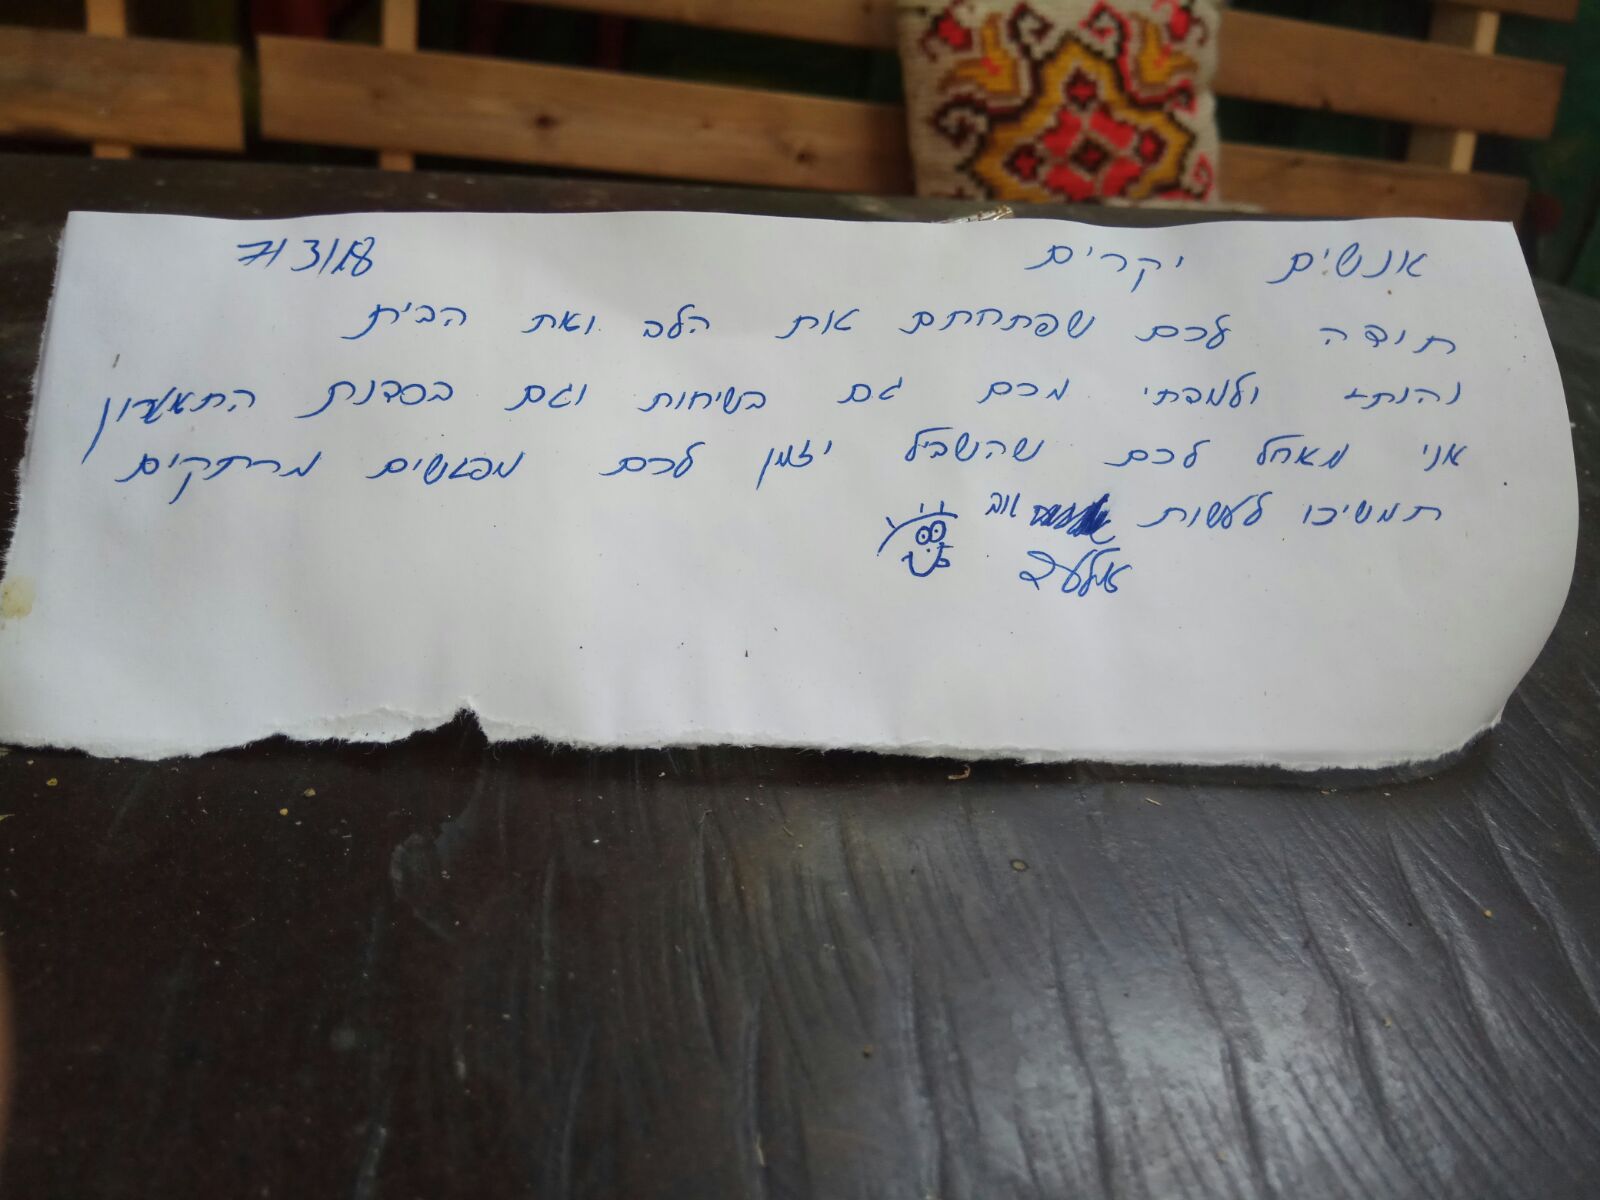 אנשים יקרים 7/3/18
תודה לכם שפתחתם את הלב ואת הבית
ולמדתי מכם גם בשיחות וגם בסדנת התאטרון
אני מאחל לכם שהשביל יזמן לכם מפגשים מרתקים
תמשיכו לעשות טוב
אלעד